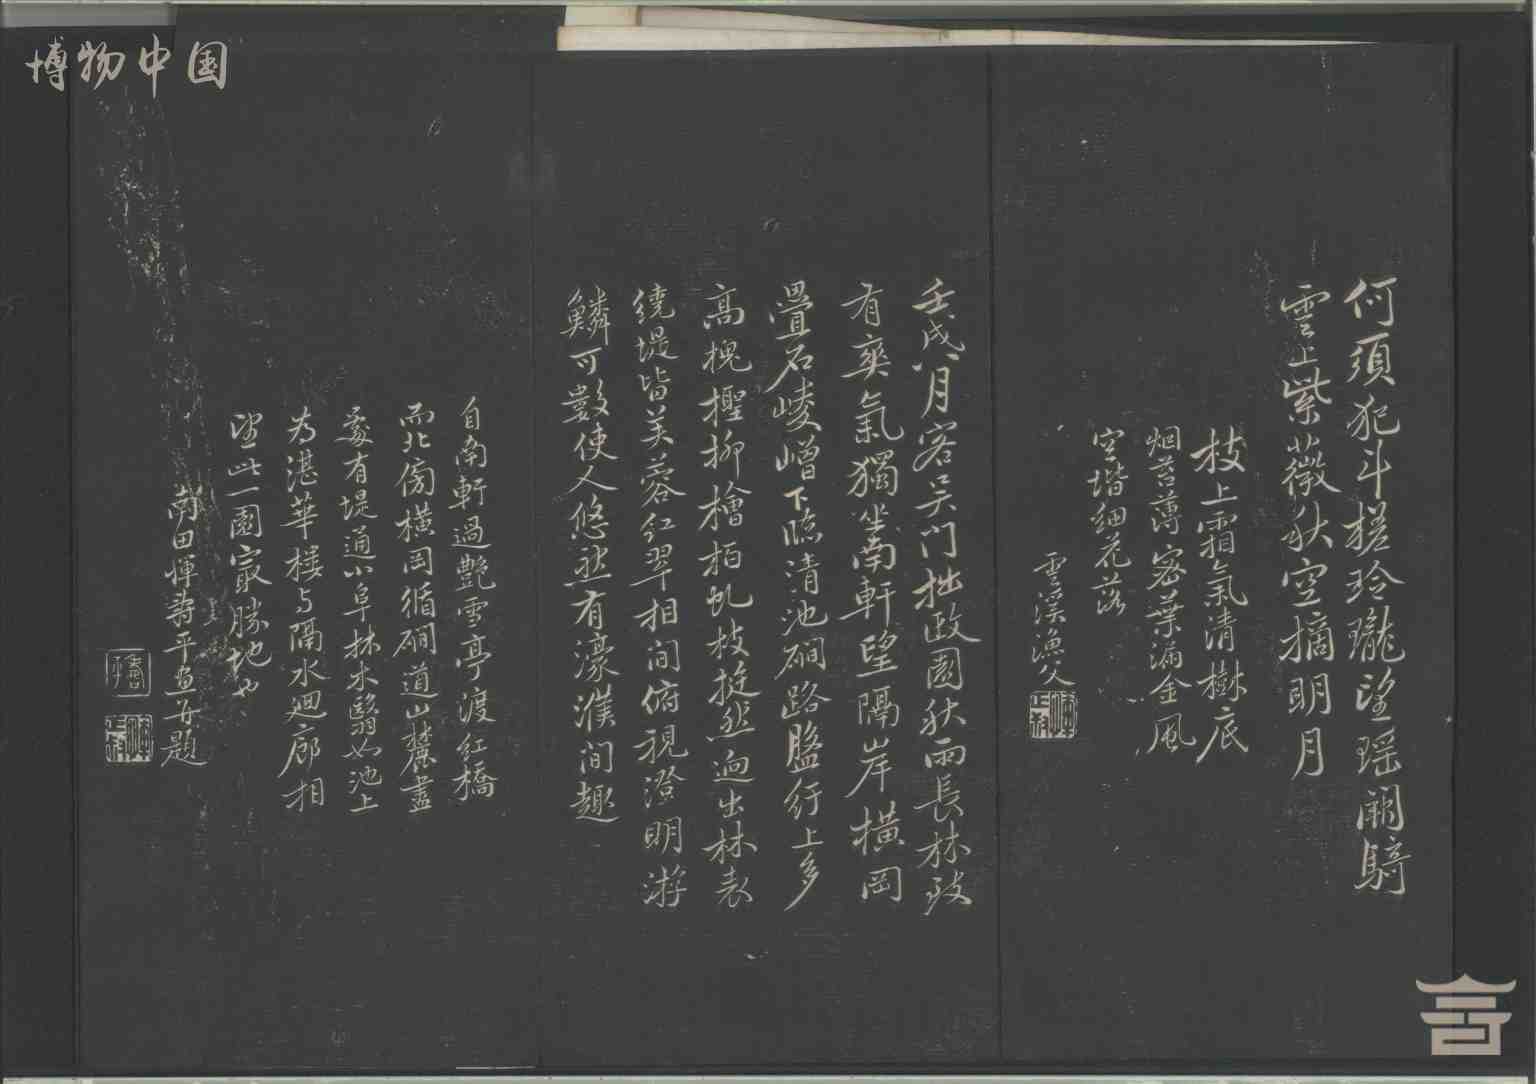 博物中国
何須犯斗槎玲瓏望瑶闕騎
雲上紫薇秋空摘明月
枝上霜氣清樹底
烟苔薄密葉漏金風
空堦細花落
雲溪漁父
壬戌八月客吴门拙政園秋雨長林致
有爽氣獨坐南軒望隔岸橫岡
疊石崚嶒下臨清池磵路盤紆上多
高槐檉柳檜柏虬枝挺然迥出林表
繞堤皆芙蓉红翠相间俯視澄明游
鱗可數使人悠然有濠濮间趣
自南軒過艷雪亭渡红橋
而北傍橫岡循磵道山麓盡
處有堤通小阜林木翳如池上
为湛華楼与隔水廻廊相
望此一園最勝地也
南田惲壽平画并題